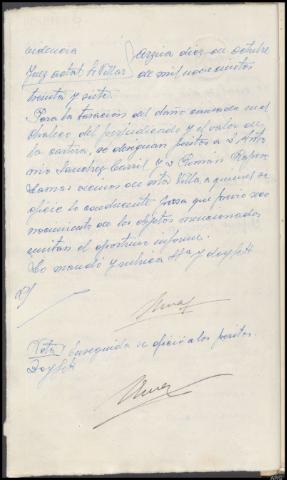 videncia
Juez actal. Sr Villar
Arzúa diez de octubre
de mil novecientos
treinta y siete.
Para la tasación del daño causado en el
chaleco del perjudicado y el valor de
la cartera, se designan peritos a D. Anto
nio Sanchez Carril y D. Román Raposo
Lamas vecinos de esta Villa, a quienes se
oficie lo conducente para que previo reco
nocimiento de los objetos mencionados
emitan el oportuno informe.
Lo mandó y rubrica Sª y doy fe
Nota/ Enseguida se ofició a los peritos.
Doy fe